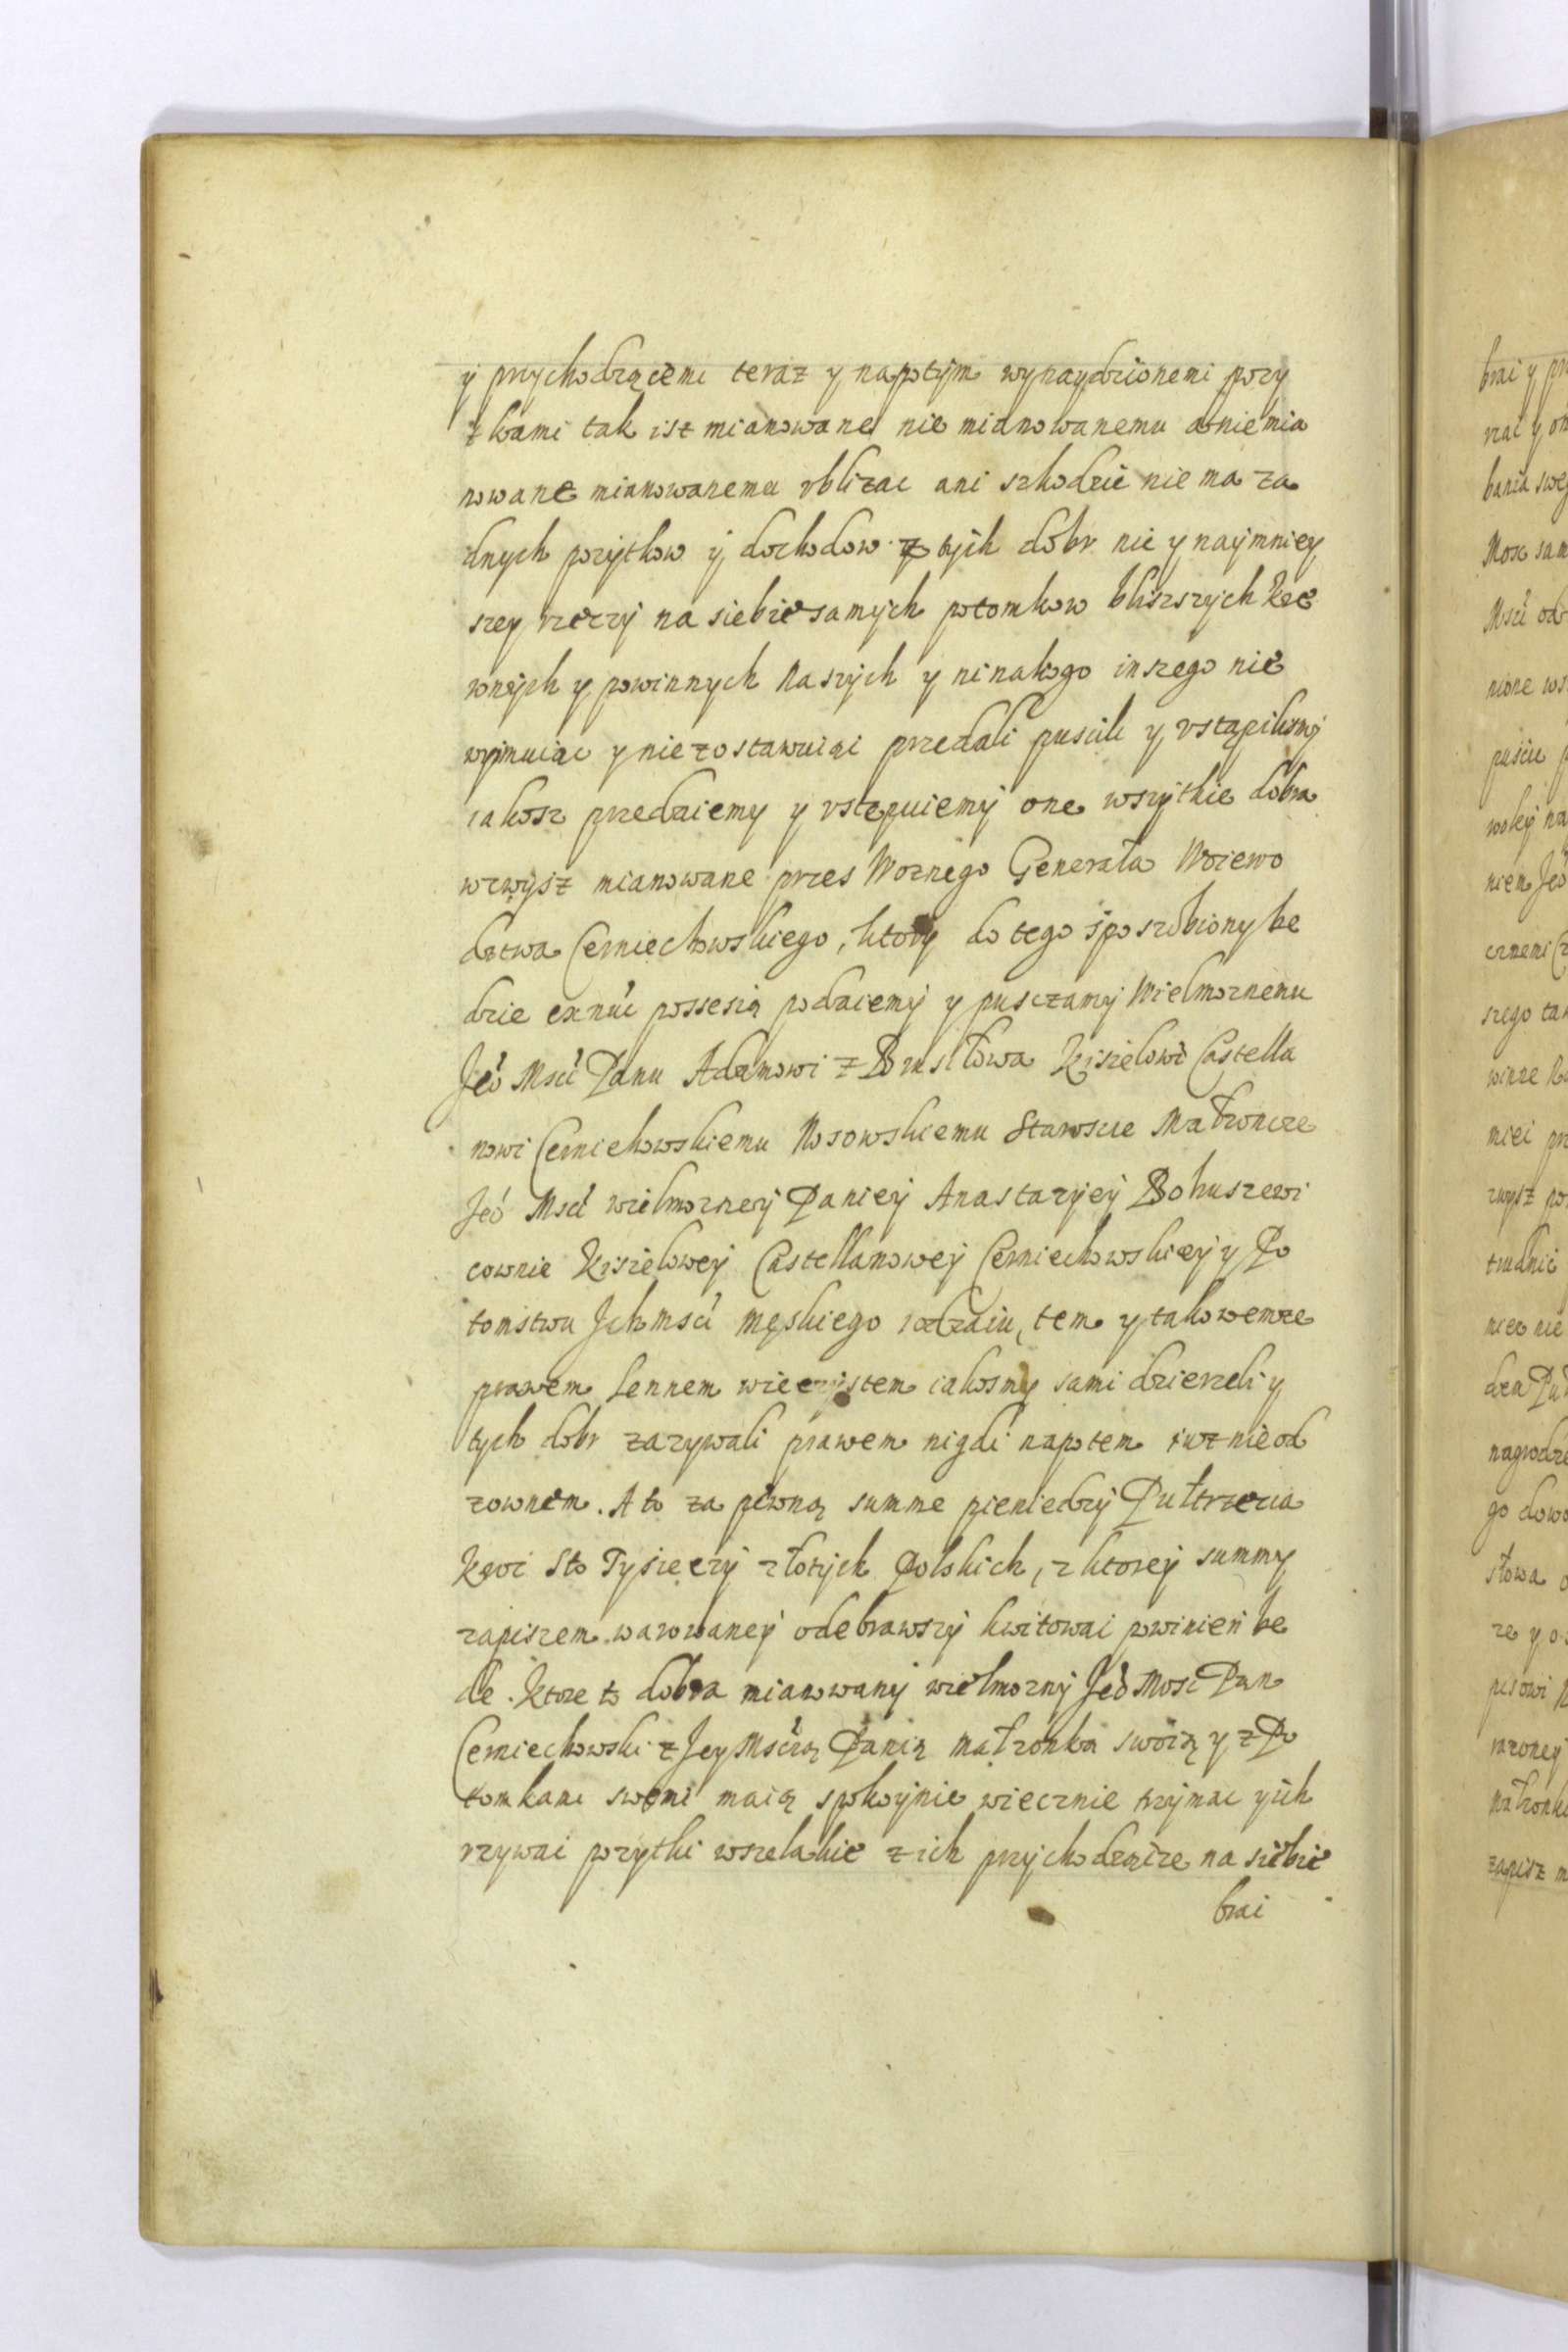 ÿ przychodzącemi teraz y napotÿm wynaydzionemi pozy
tkami tak isz mianowane nie mianowanemu a niemia
nowane mianowanemu vblizac ani szkodzić nie ma za
dnych pozytkow ÿ dochodow z tÿch dobr nie y naÿmniey
szey rzeczÿ na siebie samych potomkow bliszszych kre
wnÿch y powinnych naszÿch y ni nakogo inszego nie
wyimuiąc y nie zostawuiąc przedali puscili y vstąpilismÿ
iakosz przedaiemy y vstępuiemÿ one wszÿtkie dobra
wzwÿsz mianowane przes Woznego Generała Woiewo
dztwa Czerniechowskiego, ktorÿ do tego sposobiony be
dzie ex nuć possesią podaiemÿ y pusczamÿ Wielmoznemu
Jeo Mści Panu Adamowi z Brusiłowa Kisielowi Castella
nowi Czerniehowskiemu Nosowskiemu Staroscie Małzoncze
Jeo Mści wielmoznej Paniey Anastazÿeÿ Bohuszewi
cownie Kisielowej Castellanowej Czerniechowskiey y Po
tomstwu Jchmsci męskiego rodzaiu, tem y takowemze
prawem lennem wieczÿstem iakosmy sami dzierzeli y
tych dobr zazywali prawem nigdi napotem iuz nieod
zownem. A to za pewną summe pieniedzÿ Pułtrzecia
Kroc Sto Tysięczÿ złotÿch Polskich, z ktoreÿ summy
zapiszem warowaneÿ odebrawszÿ kwitowac powinień be
de. Ktore to dobra mianowanÿ wielmoznÿ Jeo Mosc Pan
Czerniechowski z Jey Mścią Panią małzonką swoią y z Po
tomkami swemi maią spokoÿnie wiecznie trzÿmac ÿich
vzywac pozytki wszelakie z ich przÿchodzące na siebie
brac
brai y
rzac y
bania swe
Mosc sam
Msci od
nione
puscic
wolej na
niem Jeo
cznemi
szego tak
winze
miei
zwysz
trudnic
nicz nie
nagrodze
go dowo
słowa
ze y
pisowi
małzonk
zapisz m